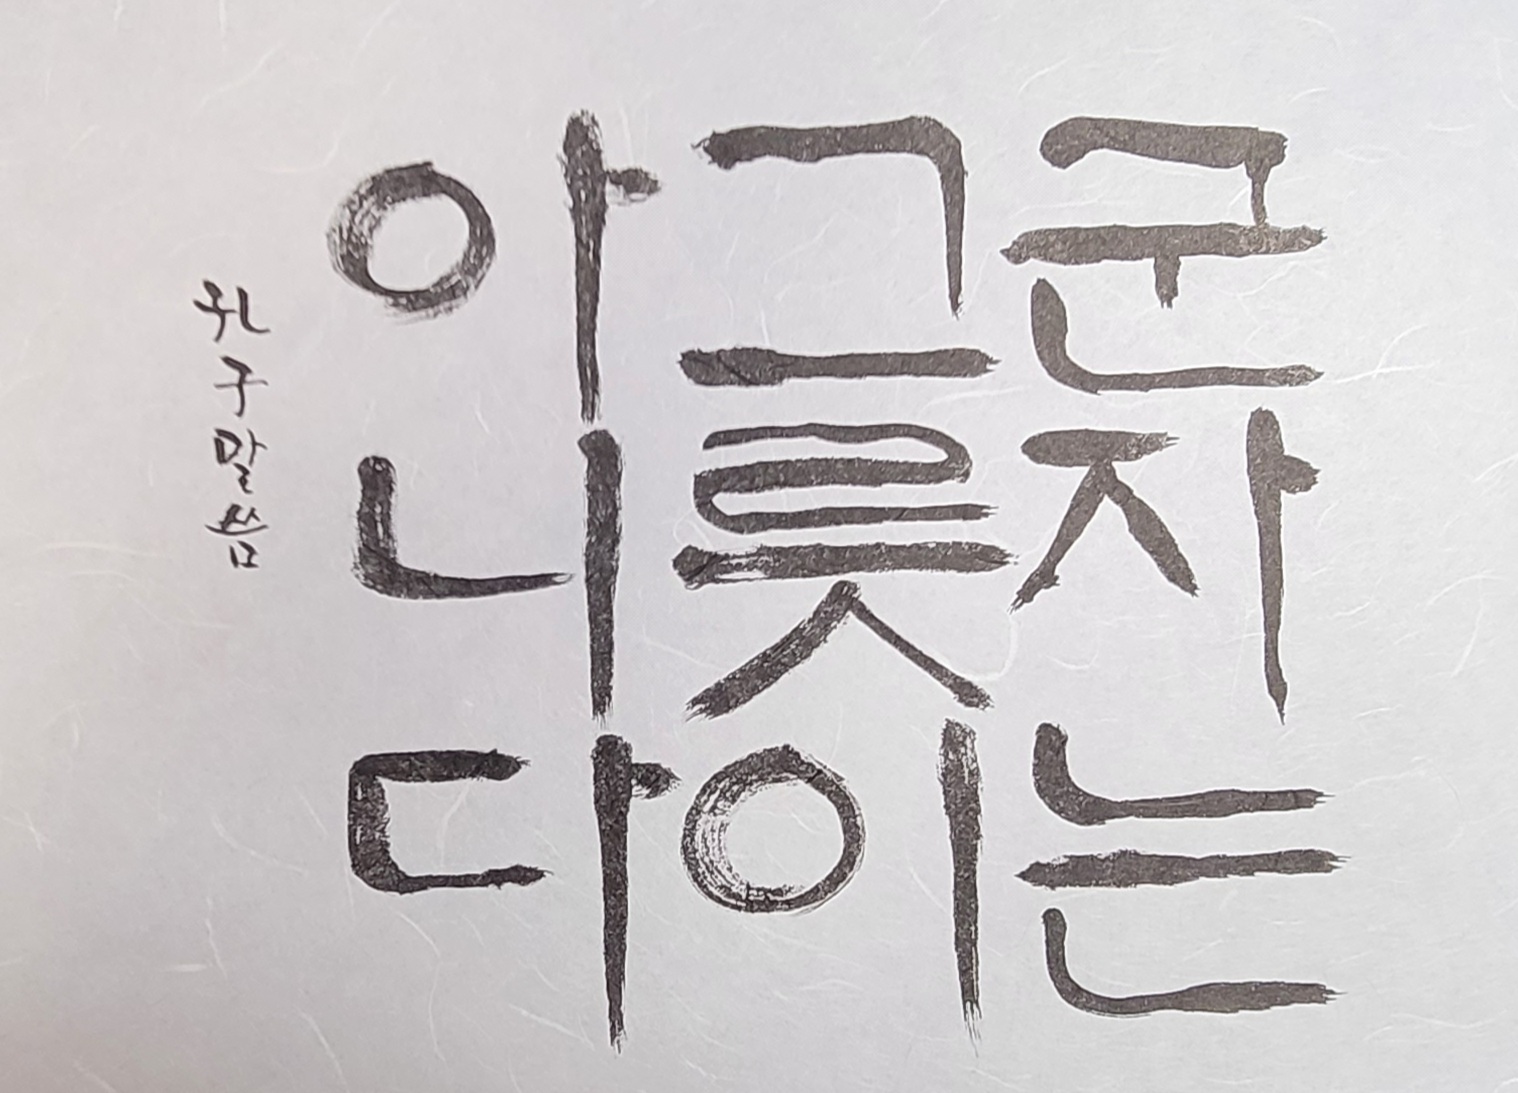 군자는
그릇이
아니다
孔子말씀